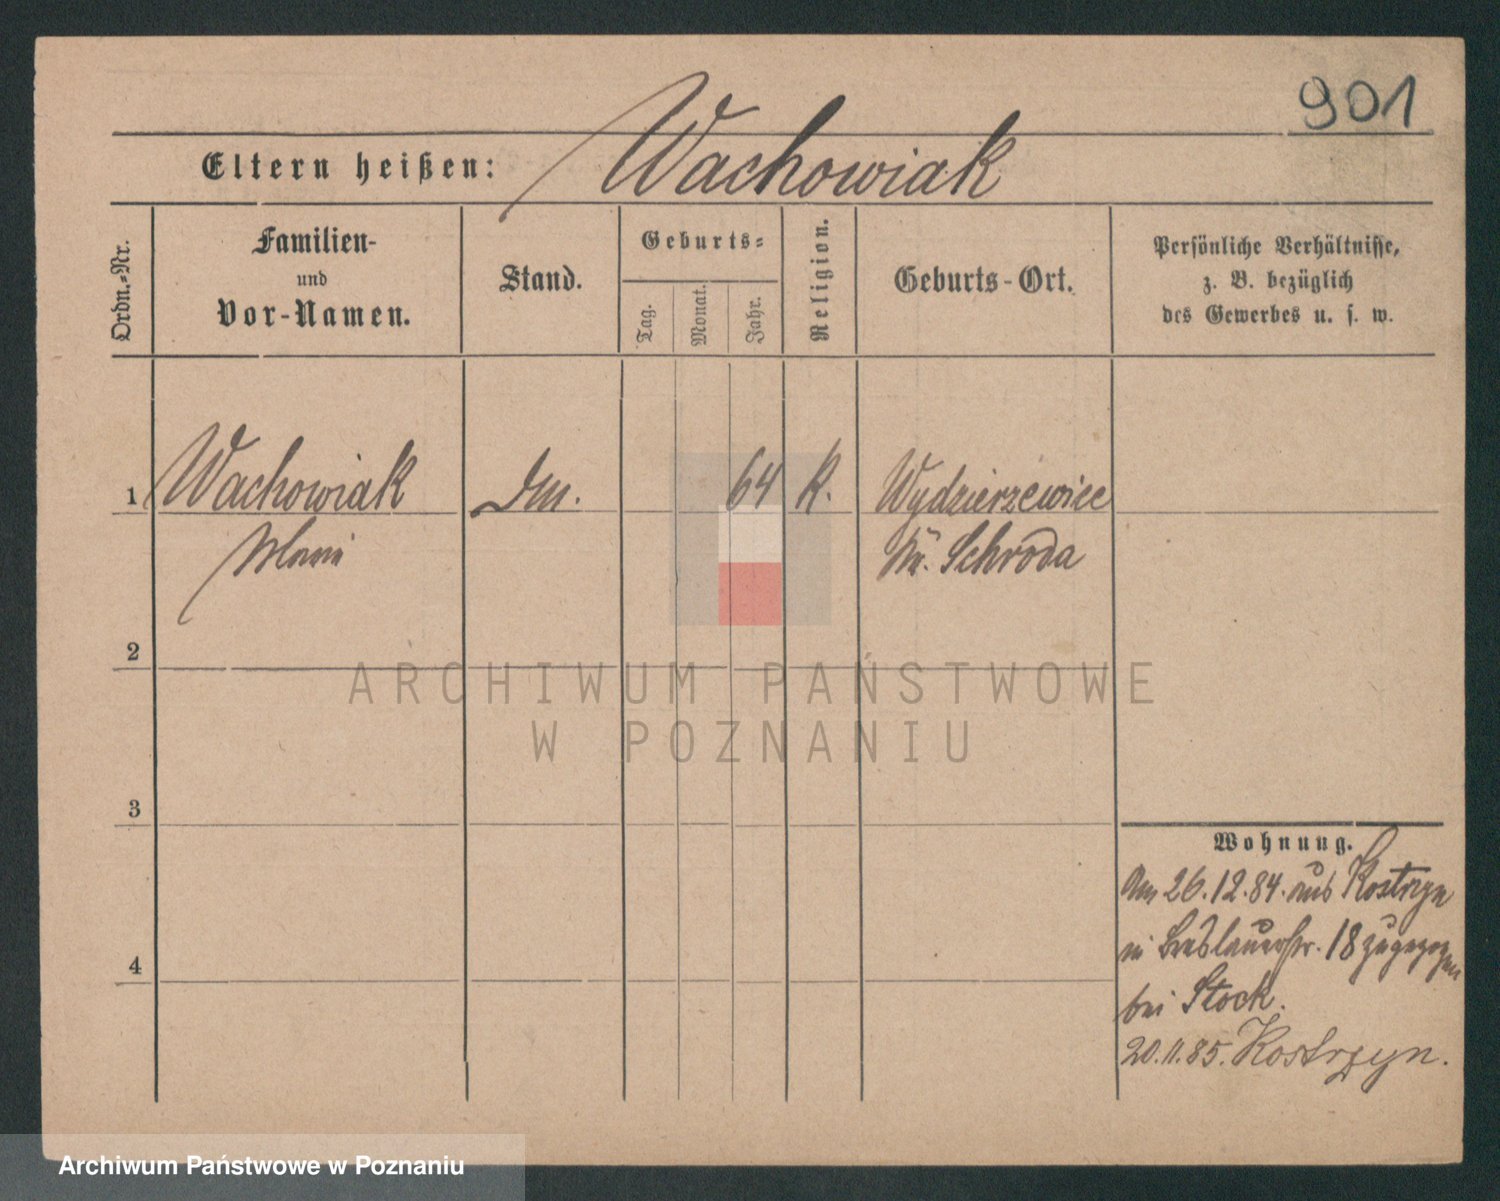 901
Wachowiak
Eltern heißen:
Ordn.-Nr.
Familien-
und
Vor-Namen.
Stand.
Geburts-
Tag.
Monat.
Jahr.
Religion.
Geburts-Ort.
Persönliche Verhältnisse,
z. B. bezüglich
des Gewerbes u. s. w.
1 Wachowiak 64 K. Wydzierzewice
Kr. Schroda
2
ARCHIWUM PAŃSTWOWE
W POZNANIU
3
Wohnung.
Am 26.12.84. aus Kostrzyn
in Breslauerstr. 18 zugezogen
4
bei Stock.
20.11.85. Kostrzyn.
Archiwum Państwowe w Poznaniu